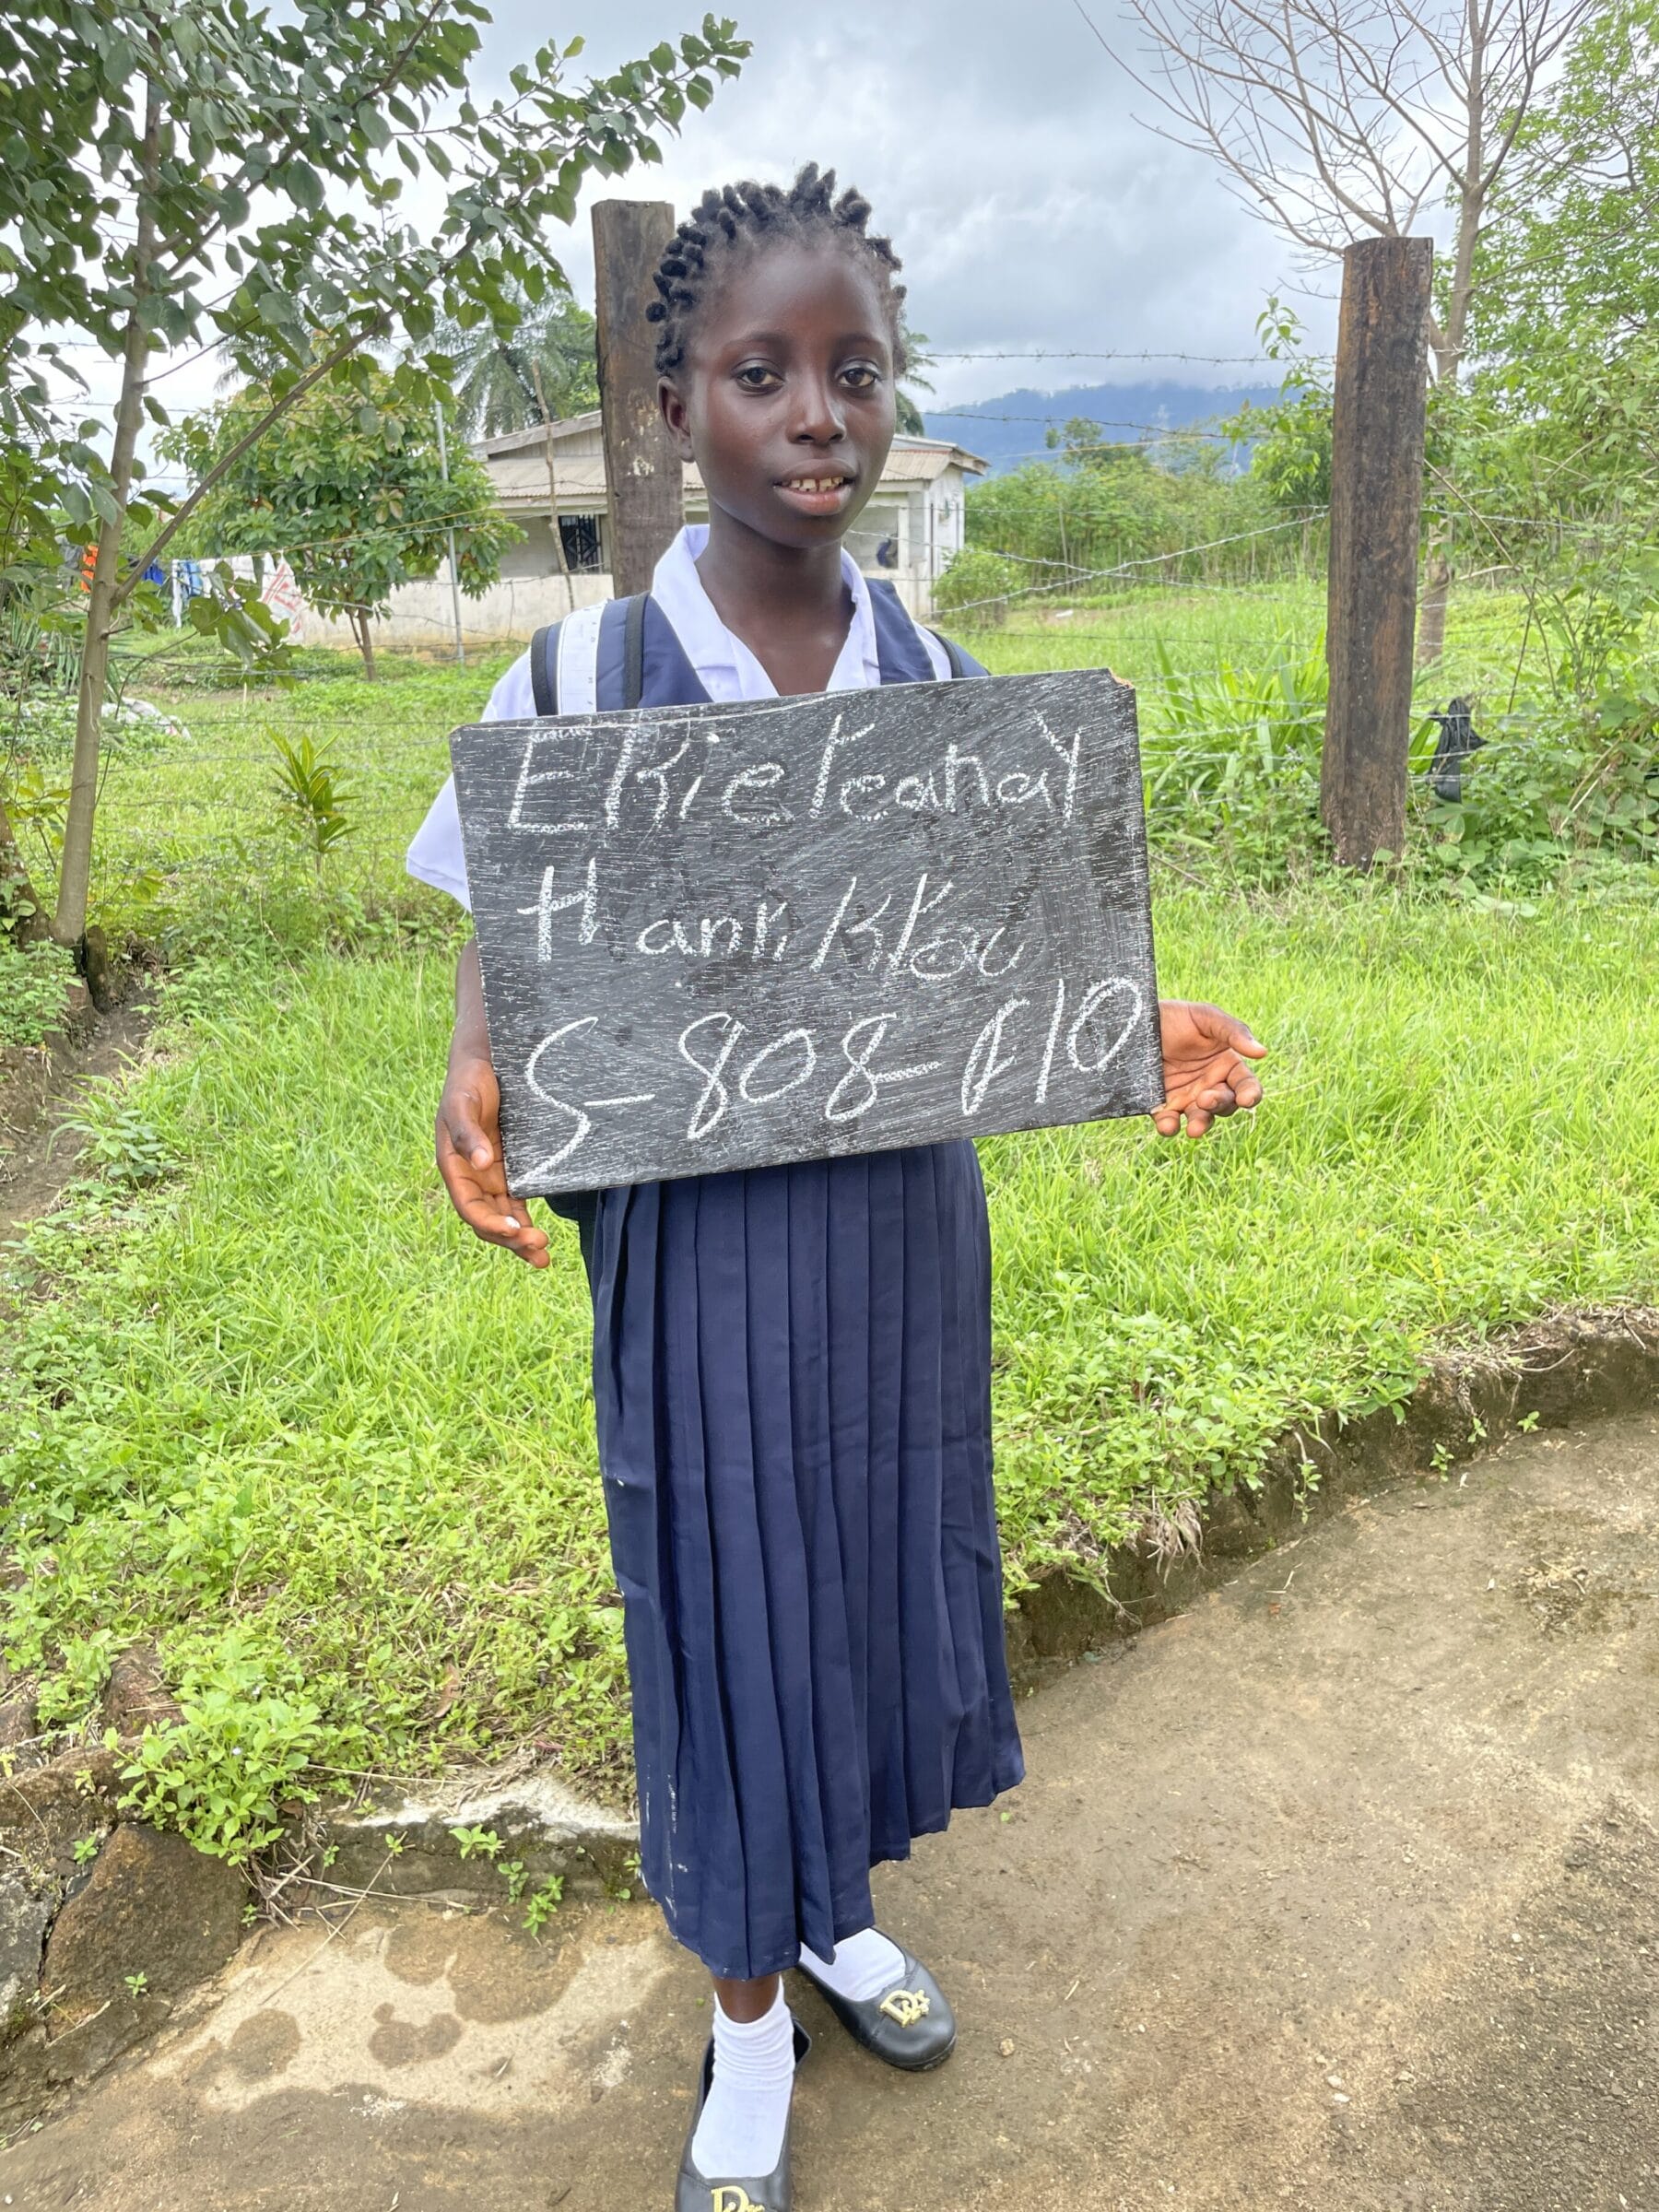 EKieteahaY
Thank You
S-808-A10